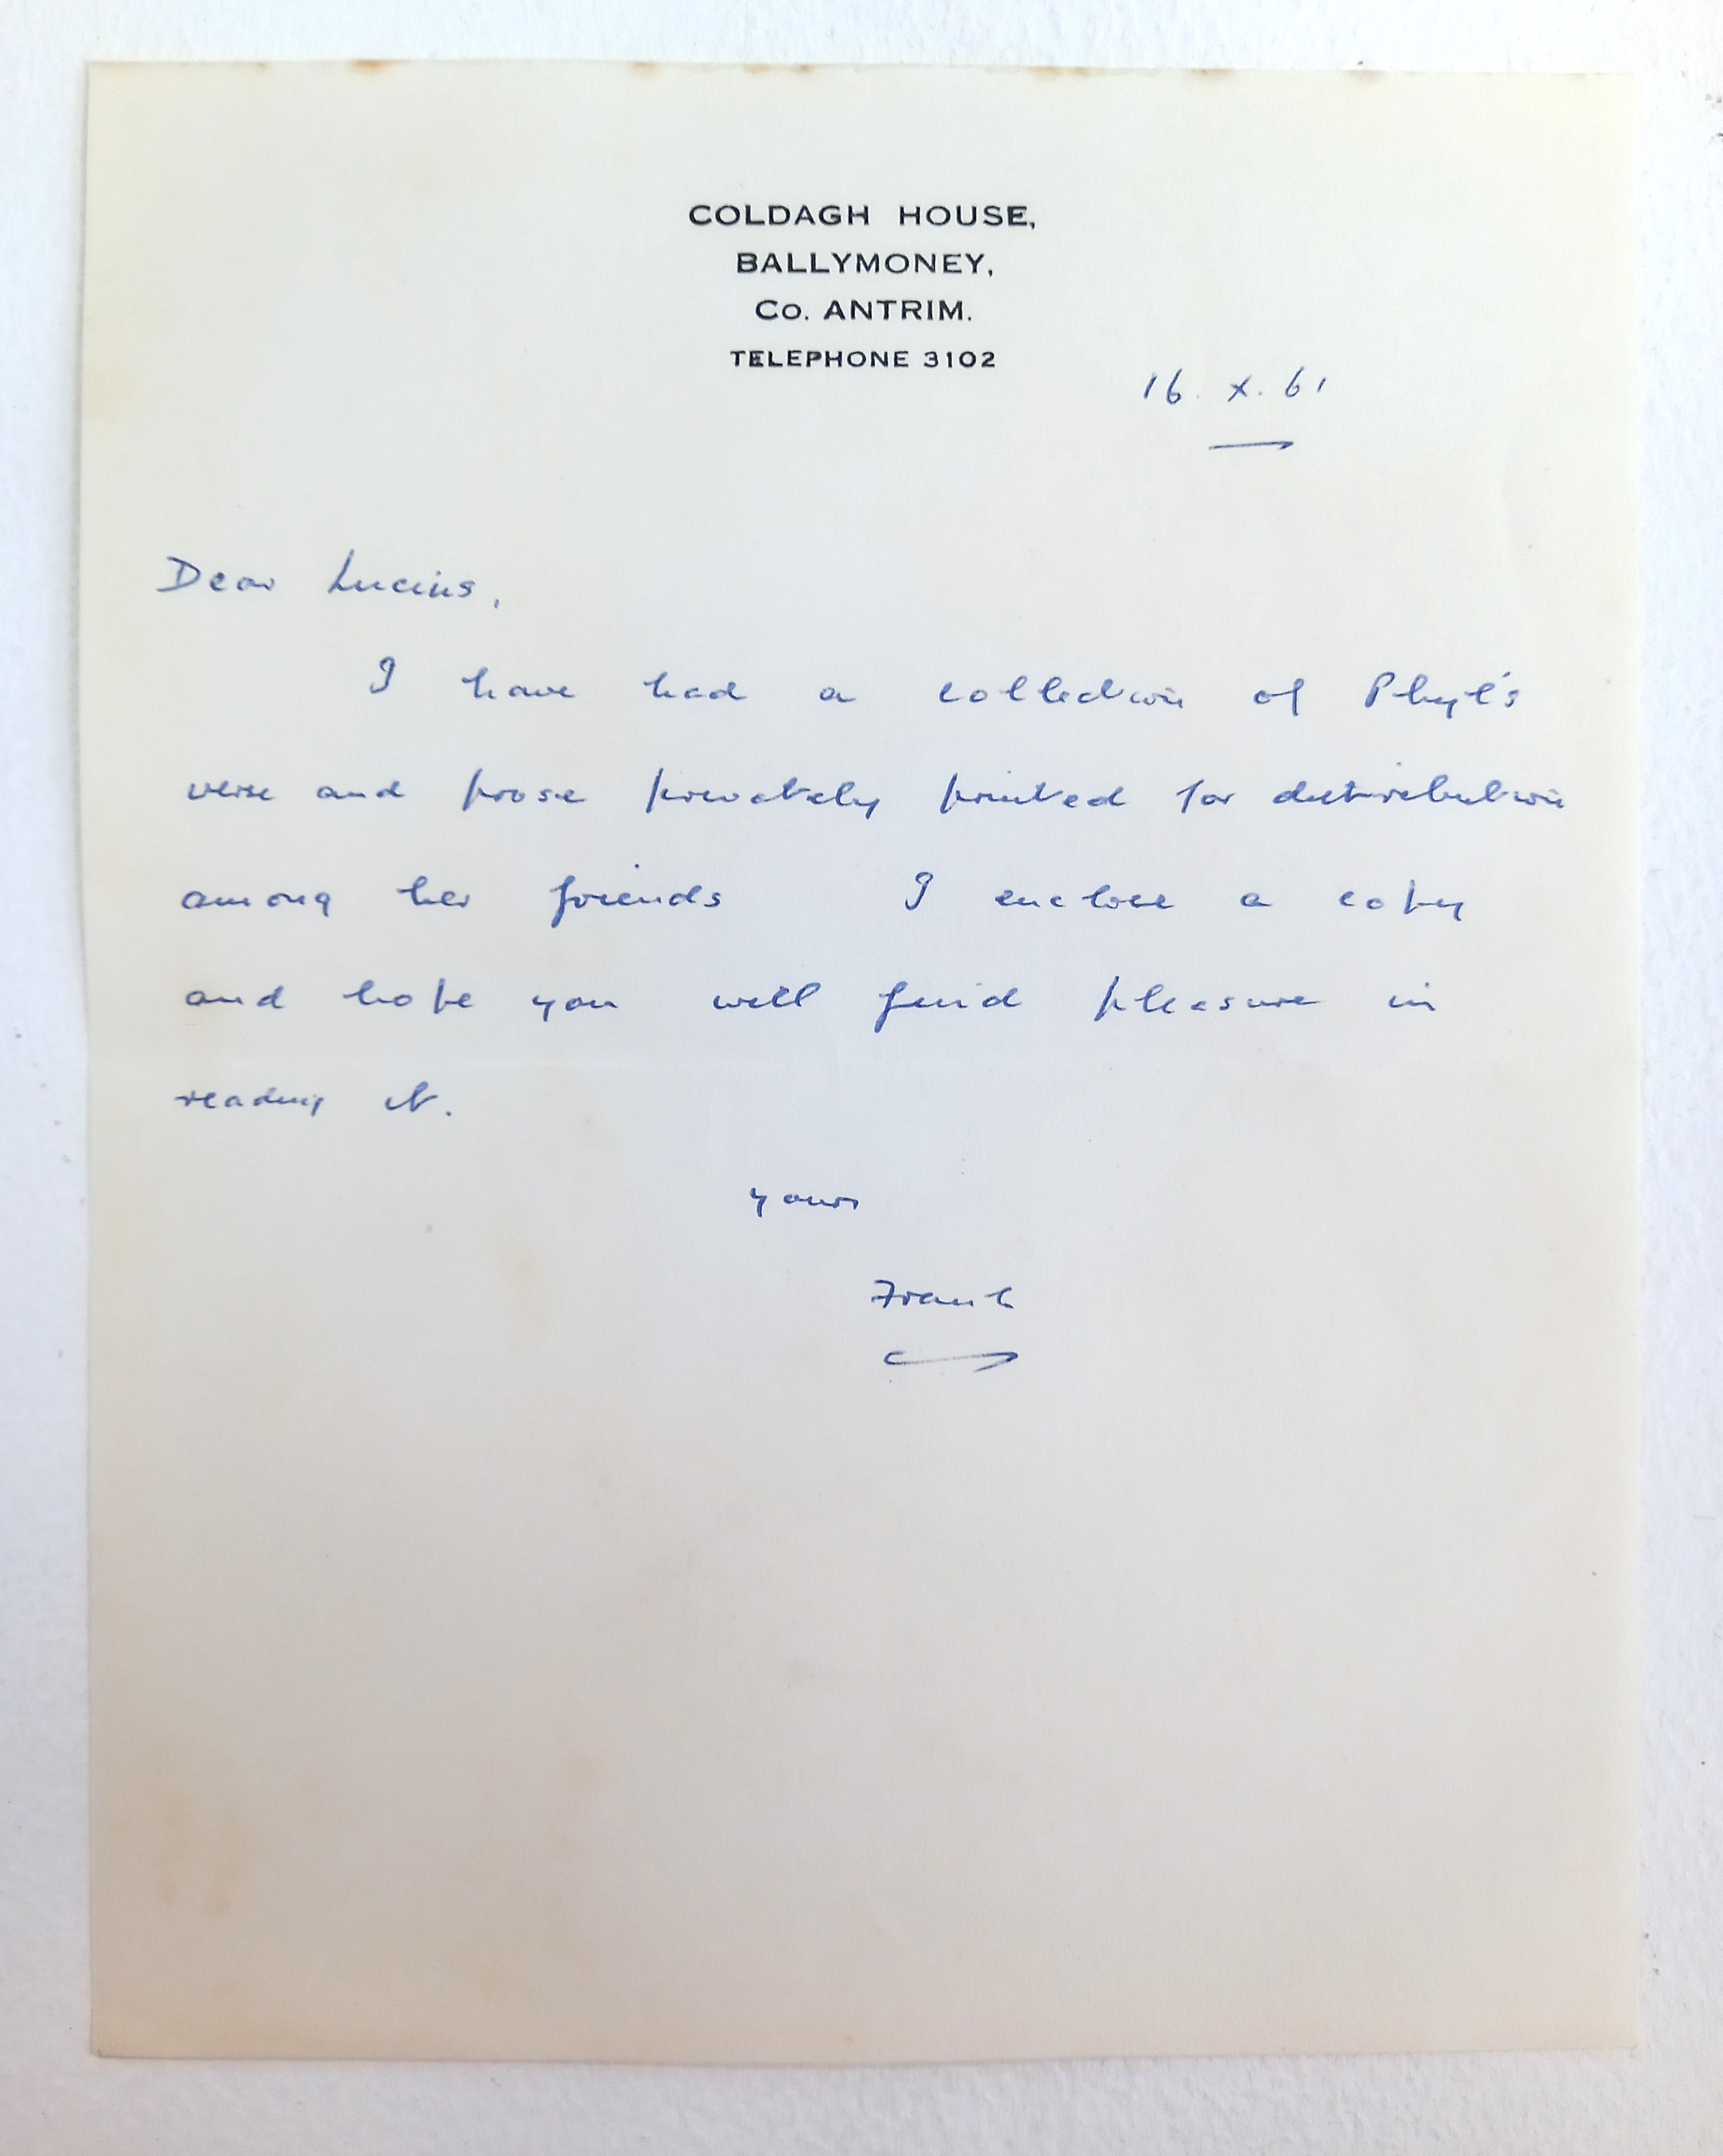 COLDAGH HOUSE,
BALLYMONEY,
Co. ANTRIM.
TELEPHONE 3102
16. X. 61
Dear Lucius,
I have had a collection of Phyl's
verse and prose privately printed for distribution
among her friends I enclose a copy
and hope you will find pleasure in
reading it.
yours
Frank